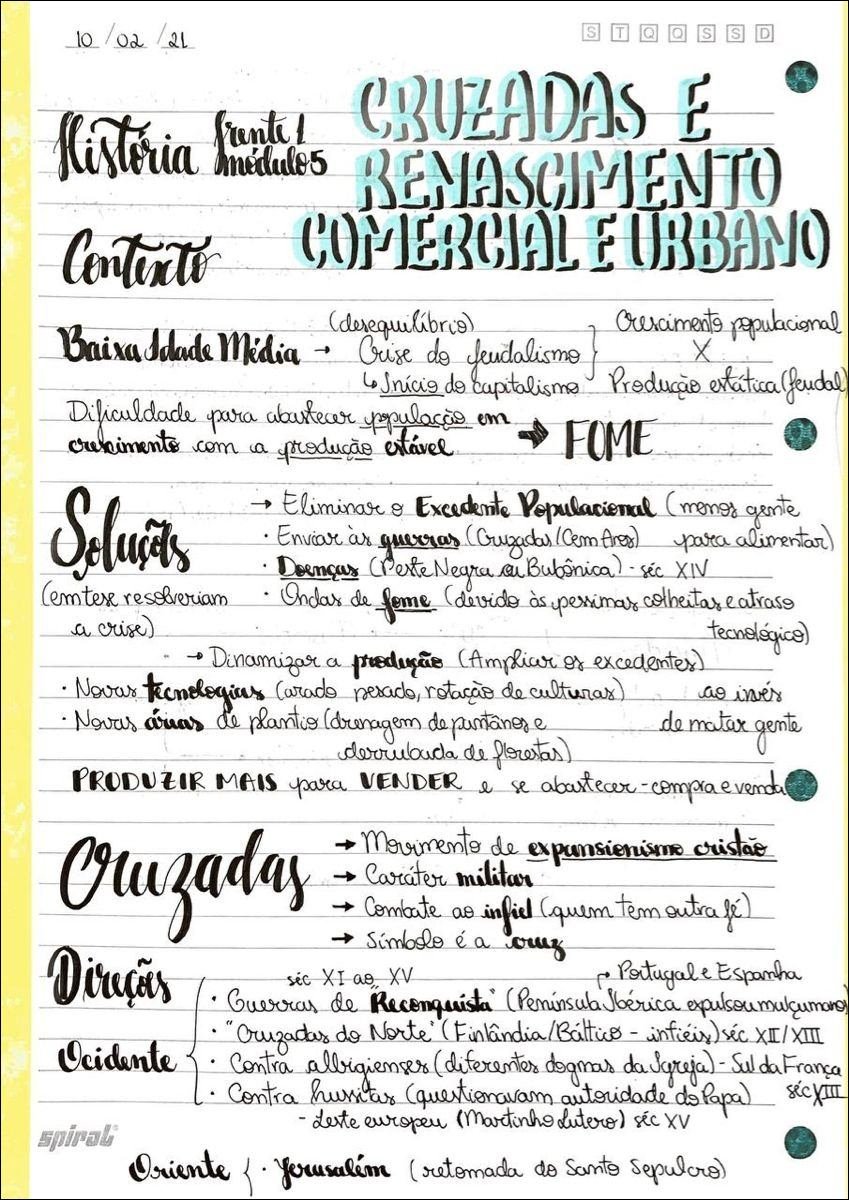 10/02/21
S T Q Q S S D
História frente 1
módulo 5
CRUZADAS E
RENASCIMENTO
COMERCIAL E URBANO
Contexto
(desequilíbrio)
Baixa Idade Média → Crise do feudalismo
↳ Início do capitalismo
Crescimento populacional
X
Produção estática (feudal)
Dificuldade para abastecer população em
crescimento com a produção estável → FOME
Soluções
(em tese resolveriam
a crise)
→ Eliminar o Excedente Populacional (menos gente
para alimentar)
· Enviar às guerras (Cruzadas/Cem Anos)
· Doenças (Peste Negra ou Bubônica) - séc XIV
· Ondas de fome (devido às pessimas colheitas e atraso
tecnológico)
→ Dinamizar a produção (Ampliar os excedentes)
ao invés
de matar gente
· Novas tecnologias (arado pesado, rotação de culturas)
· Novas áreas de plantio (drenagem de pantânos e
derrubada de florestas)
PRODUZIR MAIS para VENDER e se abastecer - compra e venda
Cruzadas
→ Movimento de expansionismo cristão
→ Caráter militar
→ Combate ao infiel (quem tem outra fé)
→ Símbolo é a cruz
Direções
séc XI ao XV
Portugal e Espanha
Ocidente
· Guerras de "Reconquista" (Península Ibérica expulsou mulçumano)
· "Cruzadas do Norte" (Finlândia/Báltico - infiéis) séc XII/XIII
· Contra albigienses (diferentes dogmas da Igreja) - Sul da França
séc XIII
· Contra hussitas (questionavam autoridade do Papa)
- leste europeu (Martinho Lutero) séc XV
spiral
Oriente { · Jerusalém (retomada do Santo Sepulcro)